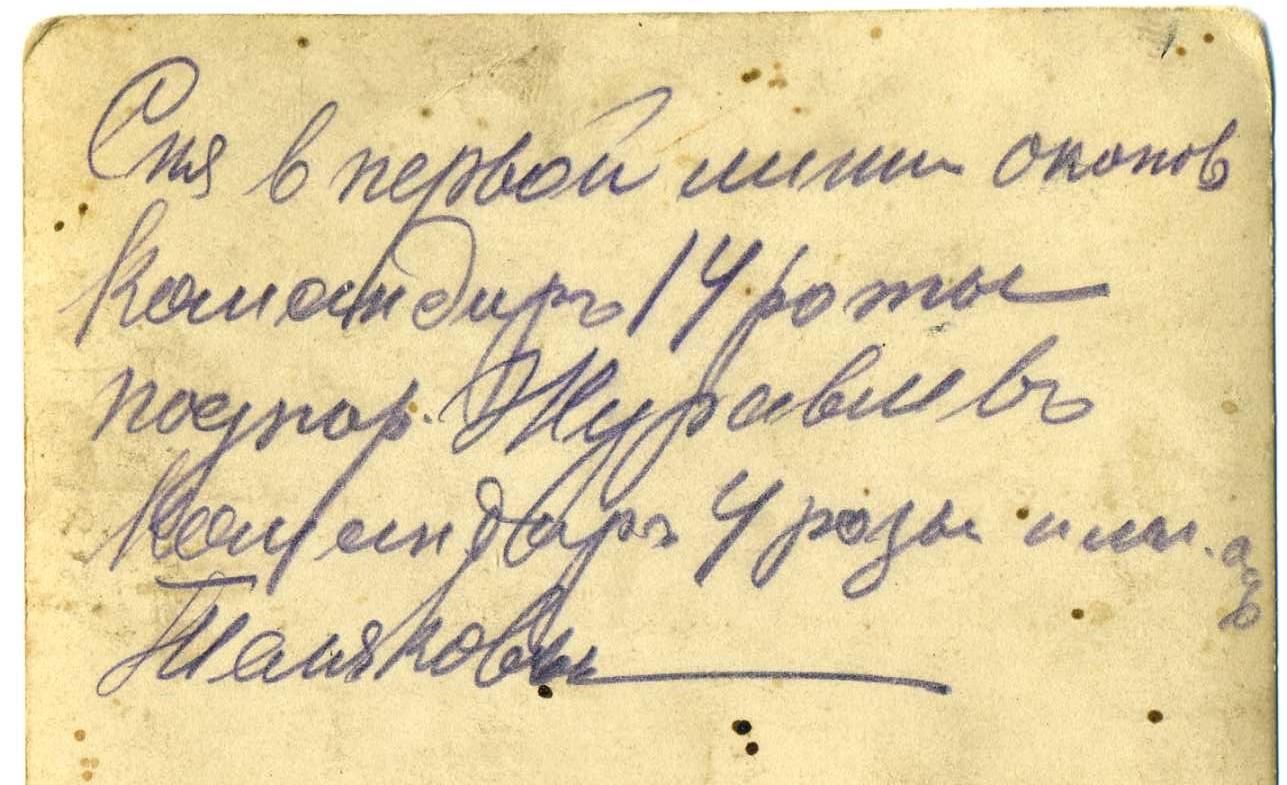 Сня в первой линии окопов
Командиръ 14 роты
подпор. Журавлевъ
Командиръ 4 роты